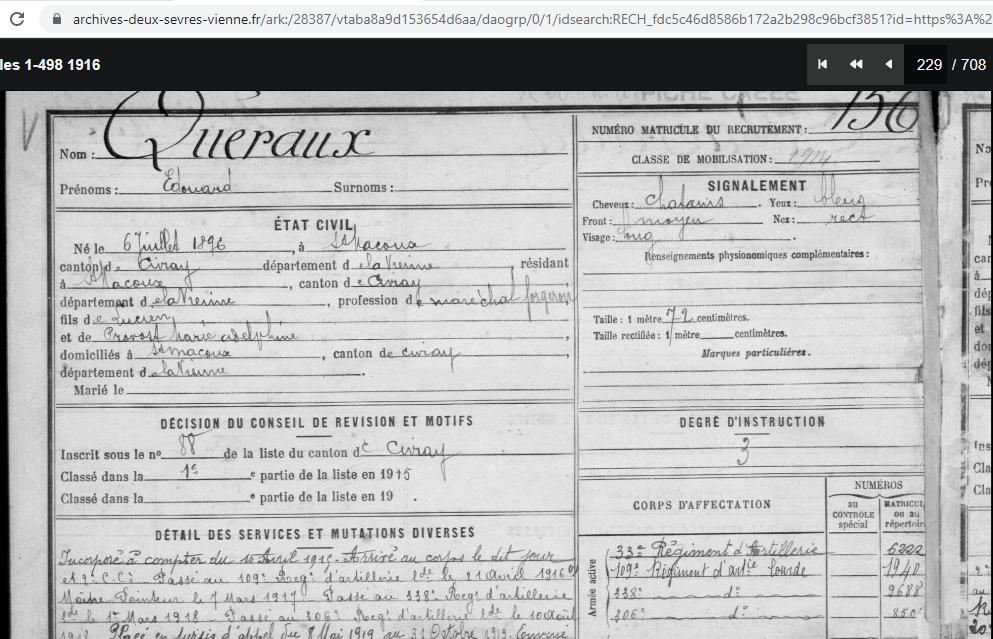 archives-deux-sevres-vienne.fr/ark:/28387/vtaba8a9d153654d6aa/daogrp/0/1/idsearch:RECH_fdc5c46d8586b172a2b298c96bcf3851?id=https%3A%2
les 1-498 1916
229 / 708
Nom : Queraux
Prénoms : Edouard Surnoms :
ÉTAT CIVIL
Né le 6 Juillet 1896, à St Macoux
canton de Civray département de la Vienne, résidant
à St Macoux, canton de Civray
département de la Vienne, profession de maréchal forgeron
fils de Lucien
et de Provost Marie adelphine
domiciliés à St Macoux, canton de Civray
département de la Vienne.
Marié le
DÉCISION DU CONSEIL DE REVISION ET MOTIFS
Inscrit sous le n° 88 de la liste du canton de Civray
Classé dans la 1e e partie de la liste en 1915
Classé dans la e partie de la liste en 19 .
DÉTAIL DES SERVICES ET MUTATIONS DIVERSES
Incorporé à compter du 10 Avril 1915. Arrivé au corps le dit jour
et 2e C.C. Passé au 109e Reg. d'artillerie lde le 21 Avril 1916
Maitre Pointeur le 7 Mars 1917 Passé au 338e Reg. d'artillerie
lde le 1er Mars 1918 Passé au 306e Reg. d'artillerie lde le 10 Août
1918 Placé en sursis d'appel du 8 Mai 1919 au 31 Octobre 1919 comme
NUMÉRO MATRICULE DU RECRUTEMENT : 156
CLASSE DE MOBILISATION : 1914
SIGNALEMENT
Cheveux : chatains. Yeux : bleus
Front : moyen Nez : rect
Visage : long.
Renseignements physionomiques complémentaires :
Taille : 1 mètre 72 centimètres.
Taille rectifiée : 1 mètre centimètres.
Marques particulières.
DEGRÉ D'INSTRUCTION
3
CORPS D'AFFECTATION
NUMÉROS
au CONTROLE spécial
MATRICUL ou au répertoire
Armée active
33e Régiment d'Artillerie 6222
109e Régiment d'artie lourde 1940
338e do 9688
306e do 850